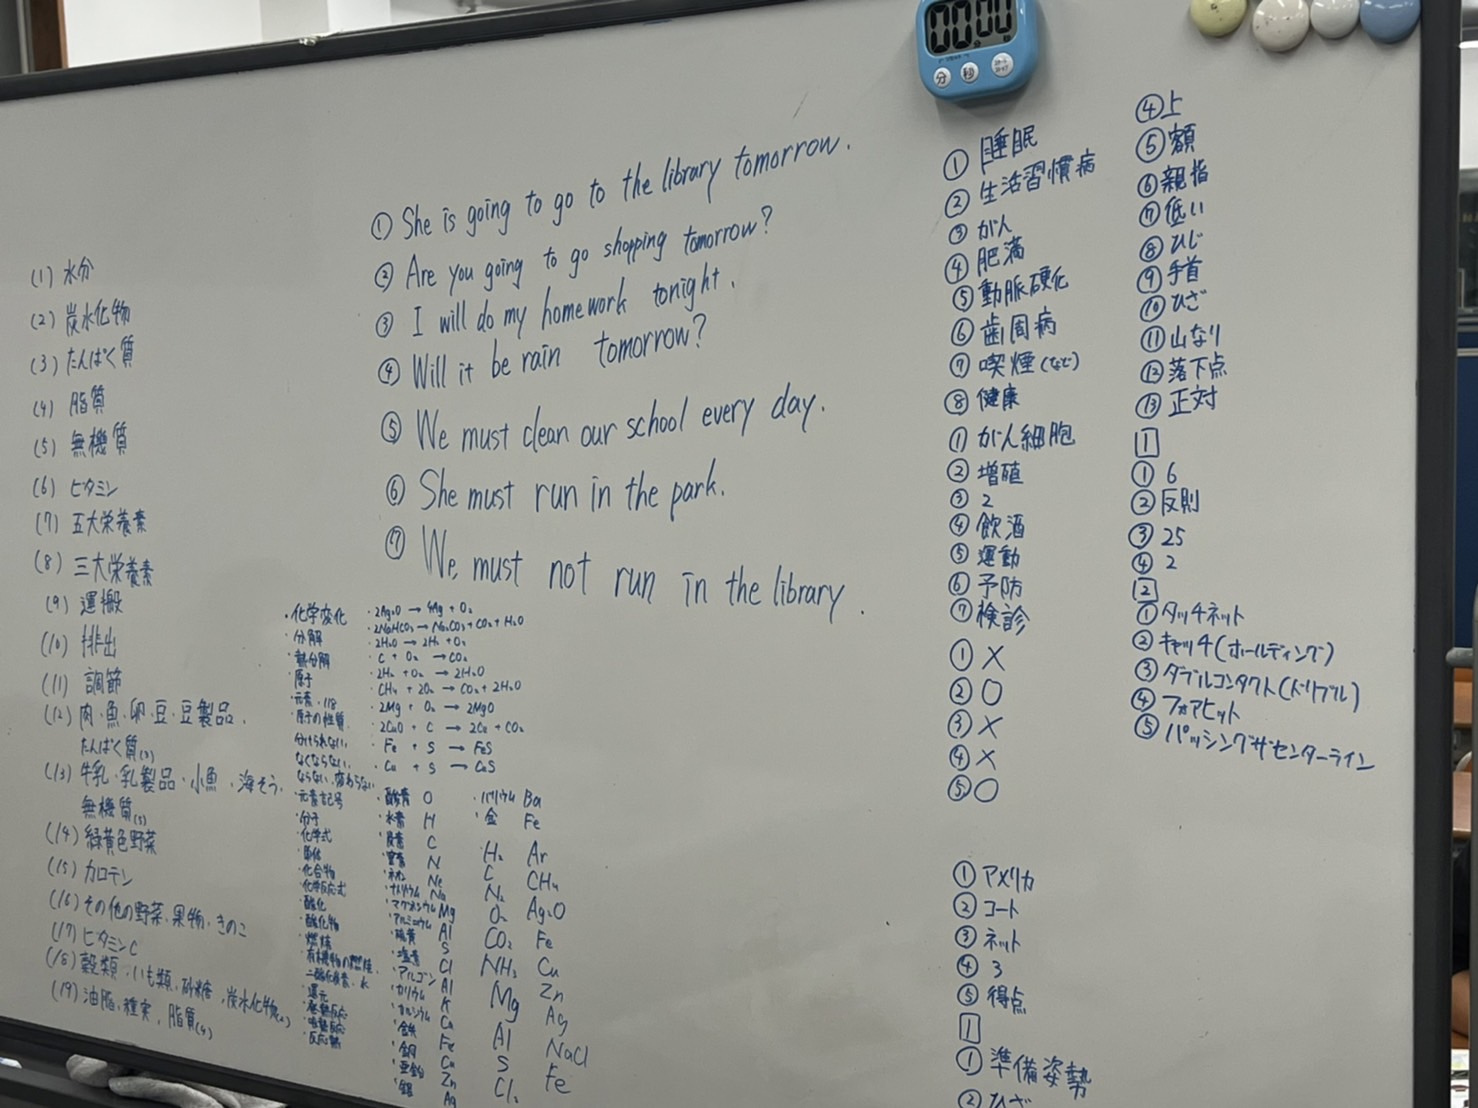 (1) 水分
(2) 炭水化物
(3) たんぱく質
(4) 脂質
(5) 無機質
(6) ビタミン
(7) 五大栄養素
(8) 三大栄養素
(9) 運搬
(10) 排出
(11) 調節
(12) 肉・魚・卵・豆・豆製品、
たんぱく質(3)
(13) 牛乳・乳製品・小魚・海そう、
無機質(5)
(14) 緑黄色野菜
(15) カロテン
(16) その他の野菜、果物、きのこ
(17) ビタミンC
(18) 穀類・いも類、砂糖、炭水化物(2)
(19) 油脂、種実、脂質(4)
① She is going to go to the library tomorrow.
② Are you going to go shopping tomorrow?
③ I will do my homework tonight.
④ Will it be rain tomorrow?
⑤ We must clean our school every day.
⑥ She must run in the park.
⑦ We must not run in the library.
・化学変化
・分解
・熱分解
・原子
・元素、118
・原子の性質
分けられない、
なくならない、
ならない、変わらない
・元素記号
・分子
・化学式
・単体
・化合物
・化学反応式
・酸化
・酸化物
・燃焼
・有機物の燃焼、
二酸化炭素、水
・還元
・発熱反応
・吸熱反応
・反応熱
・2Ag₂O → 4Ag + O₂
・2NaHCO₃ → Na₂CO₃ + CO₂ + H₂O
・2H₂O → 2H₂ + O₂
・C + O₂ → CO₂
・2H₂ + O₂ → 2H₂O
・CH₄ + 2O₂ → CO₂ + 2H₂O
・2Mg + O₂ → 2MgO
・2CuO + C → 2Cu + CO₂
・Fe + S → FeS
・Cu + S → CuS
・酸素 O
・水素 H
・炭素 C
・窒素 N
・ネオン Ne
・ナトリウム Na
・マグネシウム Mg
・アルミニウム Al
・硫黄 S
・塩素 Cl
・アルゴン Al
・カリウム K
・カルシウム Ca
・鉄 Fe
・銅 Cu
・亜鉛 Zn
・銀 Ag
・バリウム Ba
・金 Fe
H₂ Ar
C CH₄
N₂ Ag₂O
O₂ Fe
CO₂ Cu
NH₃ Zn
Mg Ag
Al NaCl
S Fe
Cl₂
① 睡眠
② 生活習慣病
③ がん
④ 肥満
⑤ 動脈硬化
⑥ 歯周病
⑦ 喫煙(など)
⑧ 健康
① がん細胞
② 増殖
③ 2
④ 飲酒
⑤ 運動
⑥ 予防
⑦ 検診
① ×
② ○
③ ×
④ ×
⑤ ○
① アメリカ
② コート
③ ネット
④ 3
⑤ 得点
1
① 準備姿勢
② ひざ
④ 上
⑤ 額
⑥ 親指
⑦ 低い
⑧ ひじ
⑨ 手首
⑩ ひざ
⑪ 山なり
⑫ 落下点
⑬ 正対
1
① 6
② 反則
③ 25
④ 2
2
① タッチネット
② キャッチ(ホールディング)
③ ダブルコンタクト(ドリブル)
④ フォアヒット
⑤ パッシングザセンターライン
00:00
分 秒